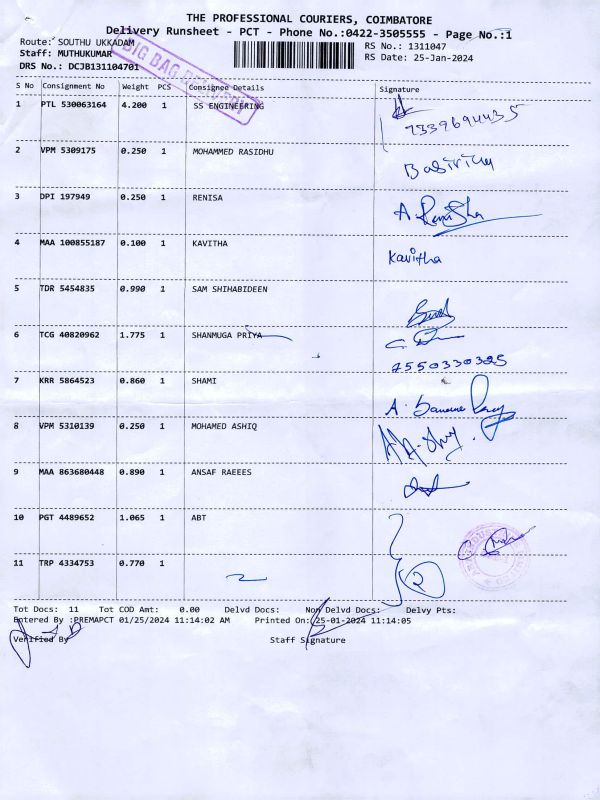 THE PROFESSIONAL COURIERS, COIMBATORE
Delivery Runsheet - PCT - Phone No.:0422-3505555 - Page No.:1
Route: SOUTHU UKKADAM
Staff: MUTHUKUMAR
DRS No.: DCJB131104701
RS No.: 1311047
RS Date: 25-Jan-2024
BIG BAG DELIVERY
S No Consignment No Weight PCS Consignee Details Signature
1 PTL 530063164 4.200 1 SS ENGINEERING
7339694435
2 VPM 5309175 0.250 1 MOHAMMED RASIDHU
3 DPI 197949 0.250 1 RENISA
4 MAA 100855187 0.100 1 KAVITHA Kavitha
5 TDR 5454835 0.990 1 SAM SHIHABIDEEN
6 TCG 40820962 1.775 1 SHANMUGA PRIYA
7550330325
7 KRR 5864523 0.860 1 SHAMI
8 VPM 5310139 0.250 1 MOHAMED ASHIQ
9 MAA 863680448 0.890 1 ANSAF RAEEES
10 PGT 4489652 1.065 1 ABT
11 TRP 4334753 0.770 1 2
Tot Docs: 11 Tot COD Amt: 0.00 Delvd Docs: Non Delvd Docs: Delvy Pts:
Entered By :PREMAPCT 01/25/2024 11:14:02 AM Printed On: 25-01-2024 11:14:05
Verified By Staff Signature